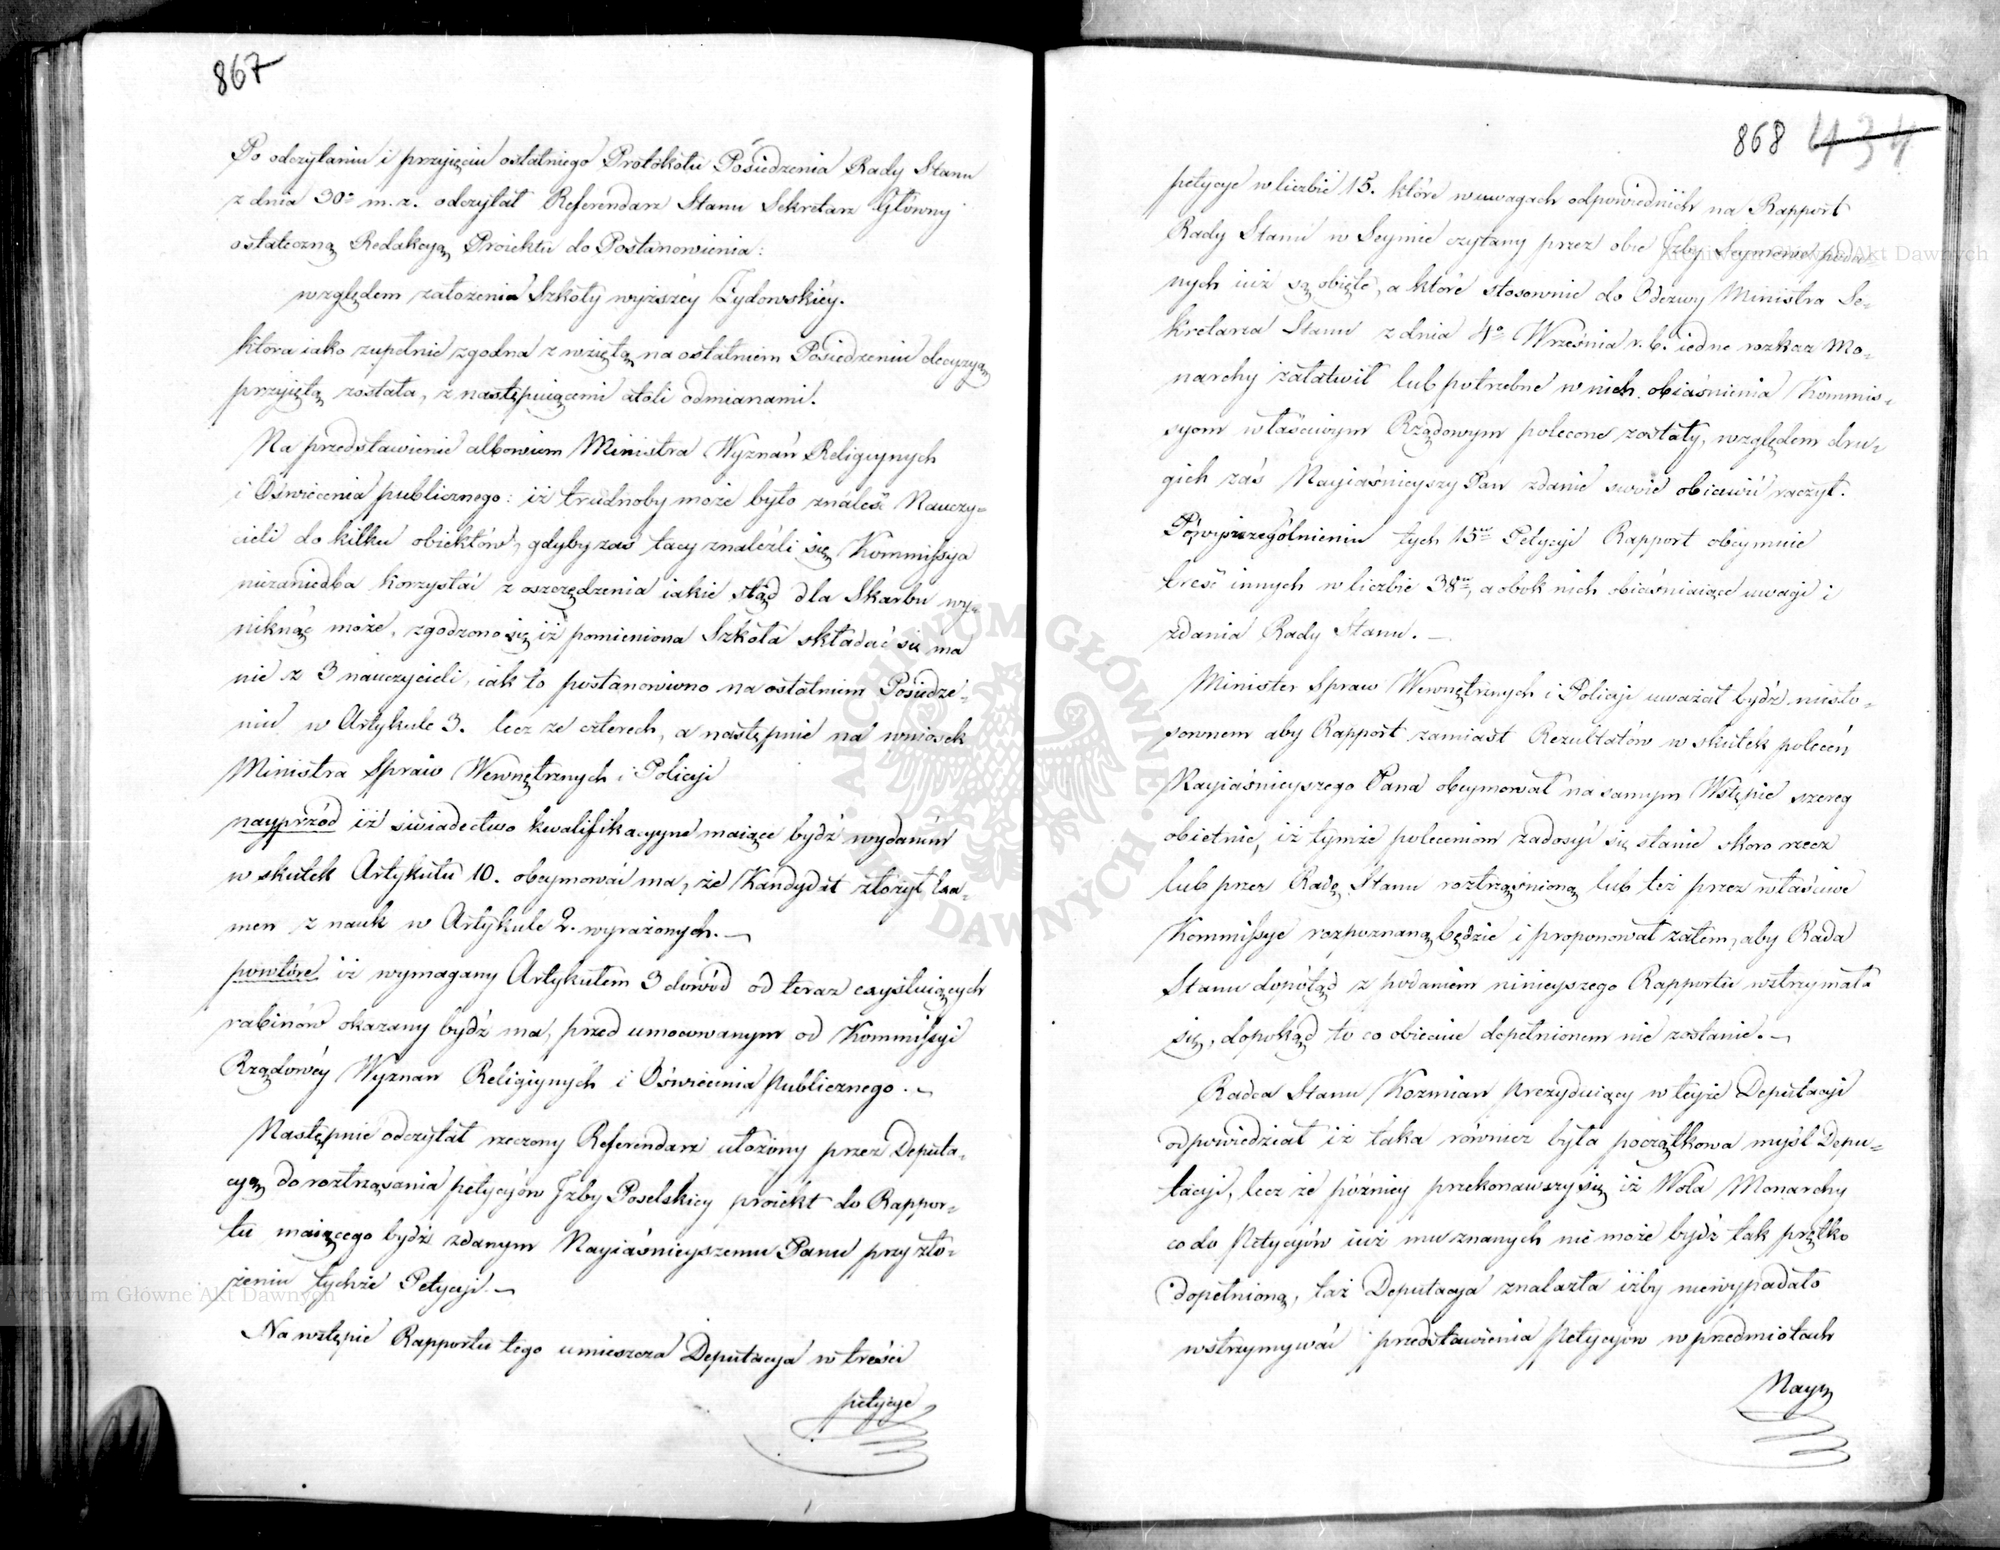 867
Po odczytaniu i przyięciu ostatniego Protokółu Posiedzenia Rady Stanu
z dnia 30o m. z. odczytał Referendarz Stanu Sekretarz Główny
ostateczną Redakcyą Proiektu do Postanowienia:
względem założenia Szkoły wyższey Żydowskiéy.
która iako zupełnie zgodna z wziętą na ostatniem Posiedzeniu decyzyą
przyiętą została, z następuiącemi atoli odmianami.
Na przedstawienie albowiem Ministra Wyznań Religiynych
i Oświecenia publicznego: iż trudnoby może było znaleść Nauczy-
cieli do kilku obiektów, gdyby zaś tacy znaleźli się Kommissya
niezaniedba korzystać z oszczędzenia iakie stąd dla Skarbu wy-
niknąć może, zgodzono się iż pomieniona Szkoła składać się ma
nie z 3 nauczycieli, iak to postanowiono na ostatniem Posiedze-
niu w Artykule 3. lecz ze czterech, a następnie na wniosek
Ministra Spraw Wewnętrznych i Policyi
nayprzód iż świadectwo kwalifikacyyne maiące bydź wydaném
w skutek Artykułu 10. obeymować ma, że Kandydat złożył Exa-
men z nauk w Artykule 2. wyrażonych.—
powtóre iż wymagany Artykułem 3 dowód od teraz exystuiących
rabinów okazany bydź ma, przed umocowanym od Kommissyi
Rządowéy Wyznań Religiynych i Oświecenia publicznego.—
Następnie odczytał rzeczony Referendarz ułożony przez Deputa-
cyą do roztrząsania petycyów Izby Poselskiey proiekt do Rappor-
tu maiącego bydź zdanym Nayiaśnieyszemu Panu przy zło-
żeniu tychże Petycyi.—
Na wstępie Rapportu tego umieszcza Deputacya w treści
petycye
868 434
petycye w liczbie 15. które w uwagach odpowiednich na Rapport
Rady Stanu w Seymie czytany przez obie Izby Seymowe poda-
nych iuż są obięte, a które stosownie do Odezwy Ministra Se-
kretarza Stanu z dnia 4o Września r. b. iedne rozkaz Mo-
narchy załatwił lub potrzebne w nich obiaśnienia Kommis-
syom właściwym Rządowym polecone zostały, względem dru-
gich zaś Nayiaśnieyszy Pan zdanie swoie obiawić raczył.
Po wyszczególnieniu tych 15tu Petycyi Rapport obeymuie
treść innych w liczbie 38u, a obok nich obiaśniaiące uwagi i
zdania Rady Stanu.—
Minister Spraw Wewnętrznych i Policyi uważał bydź niesto-
sownem aby Rapport zamiast Rezultatów w skutek poleceń
Nayiaśnieyszego Pana obeymował na samym Wstępie szereg
obietnic, iż tymże poleceniom zadosyć się stanie skoro rzecz
lub przez Radę Stanu roztrząśnioną lub też przez właściwe
Kommissye rozpoznaną będzie i proponował zatem, aby Rada
Stanu dopótąd z podaniem ninieyszego Rapportu wstrzymała
się, dopokąd to co obiecuie dopełnionem nie zostanie.—
Radca Stanu Kozmian prezyduiący w teyże Deputacyi
odpowiedział iż taka również była początkowa myśl Depu-
tacyi, lecz że późniey przekonawszy się iż Wola Monarchy
co do Petycyów iuż mu znanych nie może bydź tak prętko
dopełnioną, taż Deputacya znalazła iżby niewypadało
wstrzymywać przedstawienia Petycyów w przedmiotach
Archiwum Główne Akt Dawnych
Archiwum Główne Akt Dawnych
ARCHIWUM GŁÓWNE AKT DAWNYCH